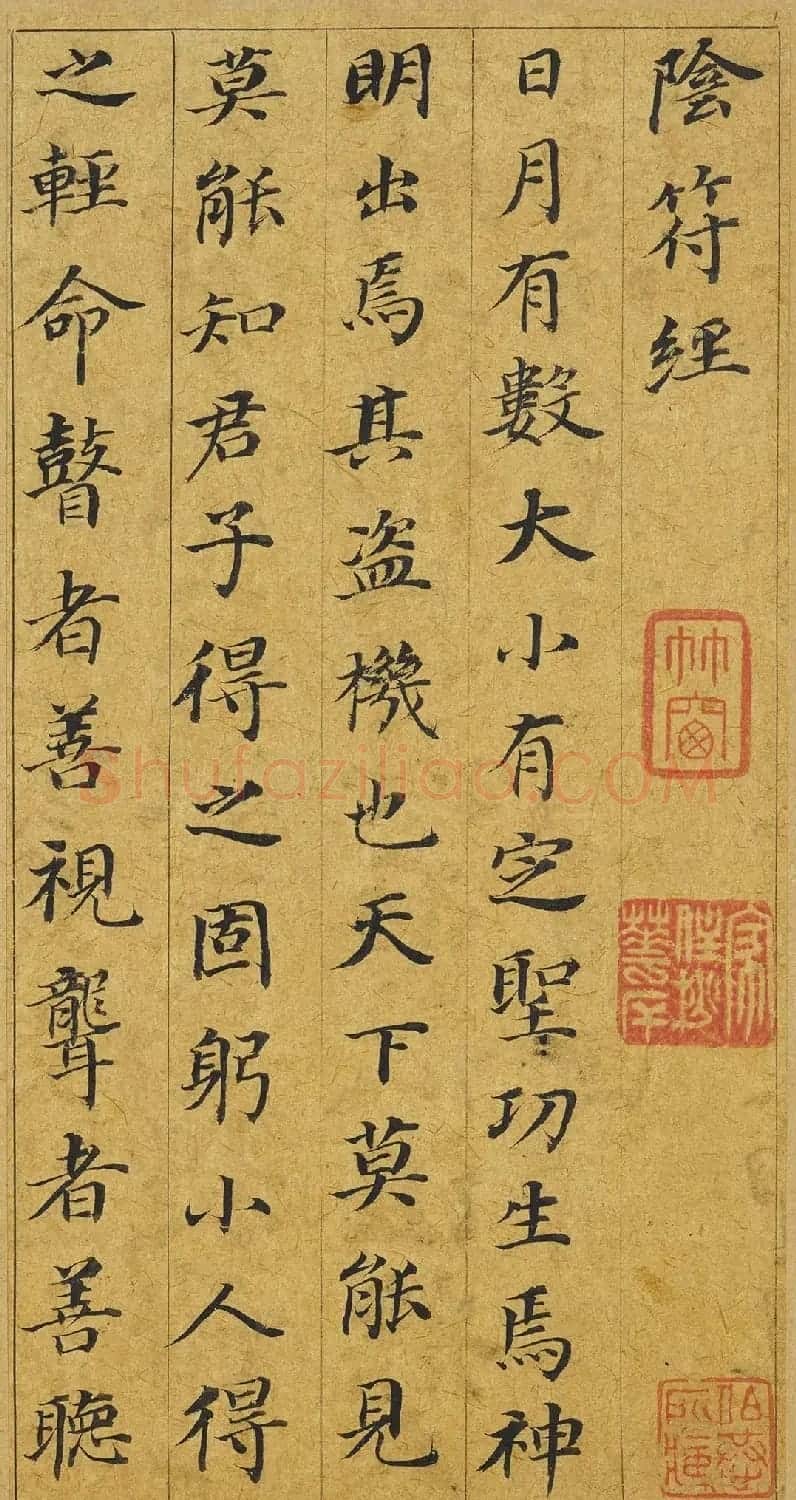 陰符經
日月有數大小有定聖功生焉神
明出焉其盜機也天下莫能見
莫能知君子得之固躬小人得
之輕命瞽者善視聾者善聽
shufaziliao.COM